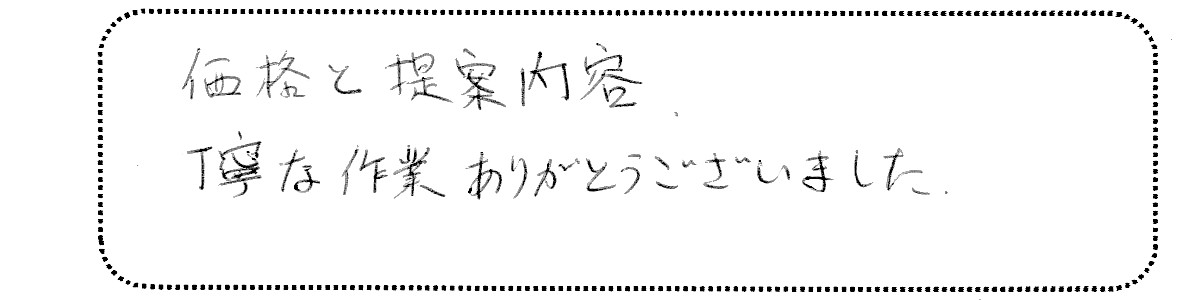 価格と提案内容
丁寧な作業ありがとうございました.